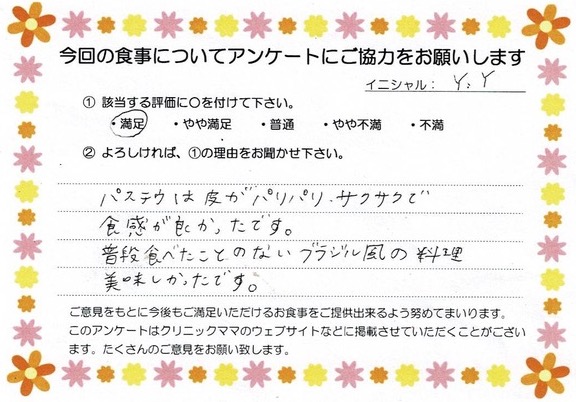 今回の食事についてアンケートにご協力をお願いします
イニシャル： Y.Y
① 該当する評価に○を付けて下さい。
・満足　・やや満足　・普通　・やや不満　・不満
② よろしければ、①の理由をお聞かせ下さい。
パステウは皮がパリパリ・サクサクで
食感が良かったです。
普段食べたことのないブラジル風の料理
美味しかったです。
ご意見をもとに今後もご満足いただけるお食事をご提供出来るよう努めてまいります。
このアンケートはクリニックママのウェブサイトなどに掲載させていただくことがござい
ます。たくさんのご意見をお願い致します。